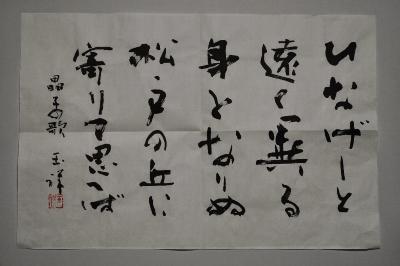 ひなげしと
遠く異る
身となりぬ
松戸の丘に
寄りて思へば
晶子歌 玉祥